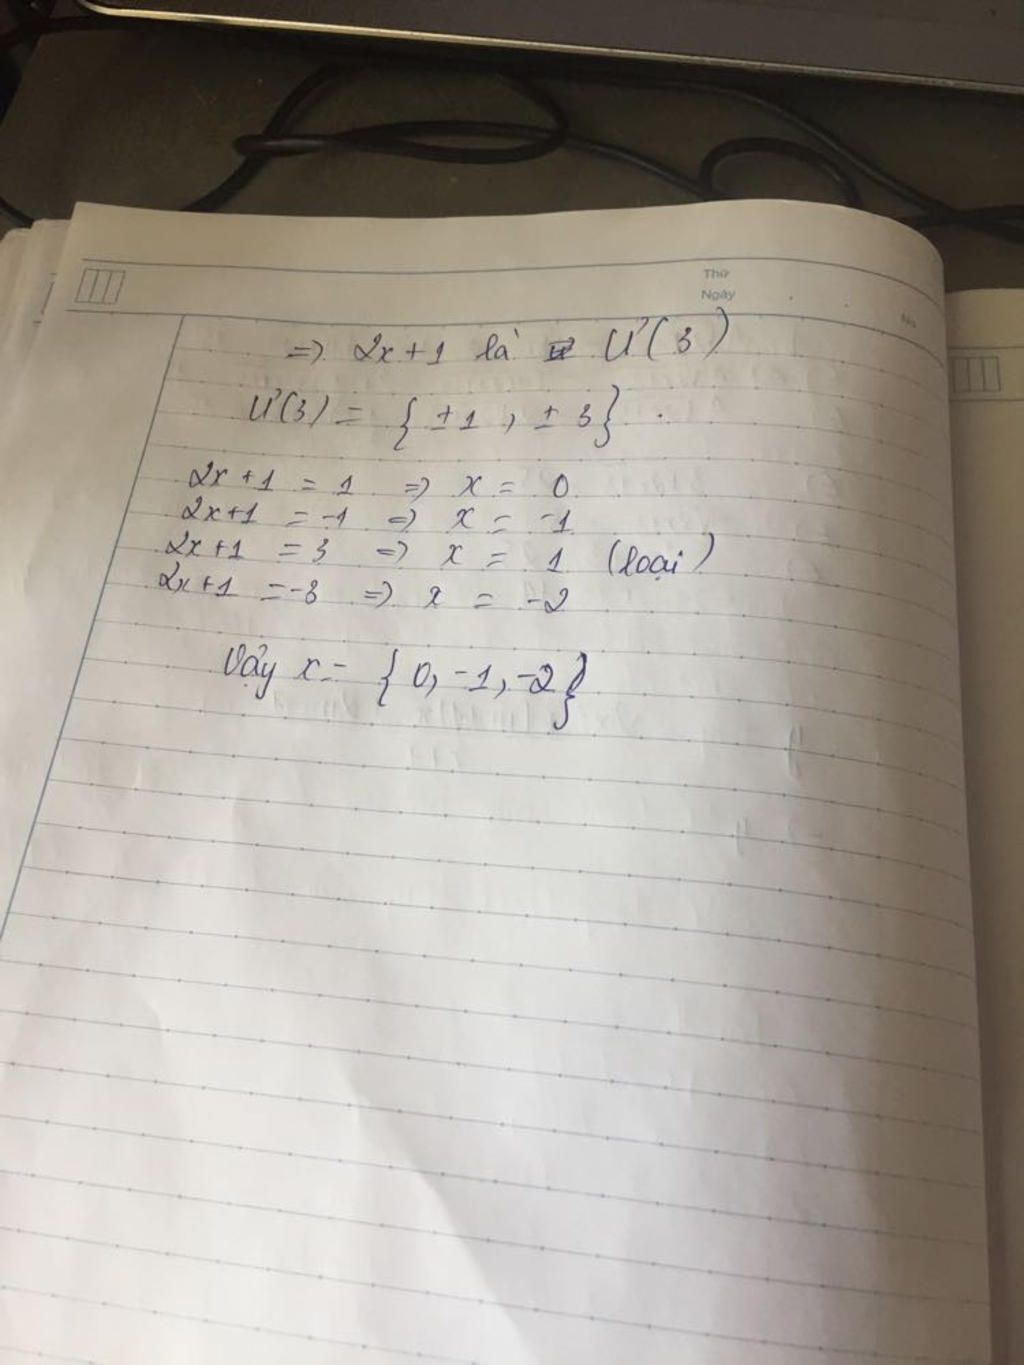 Thứ
Ngày
No
=> 2x+1 là Ư(3)
Ư(3) = { ±1 , ± 3} .
2x +1 = 1 => x = 0
2x+1 = -1 => x = -1
2x +1 = 3 => x = 1 (loại)
2x+1 = -3 => x = -2
Vậy x = { 0, -1, -2}